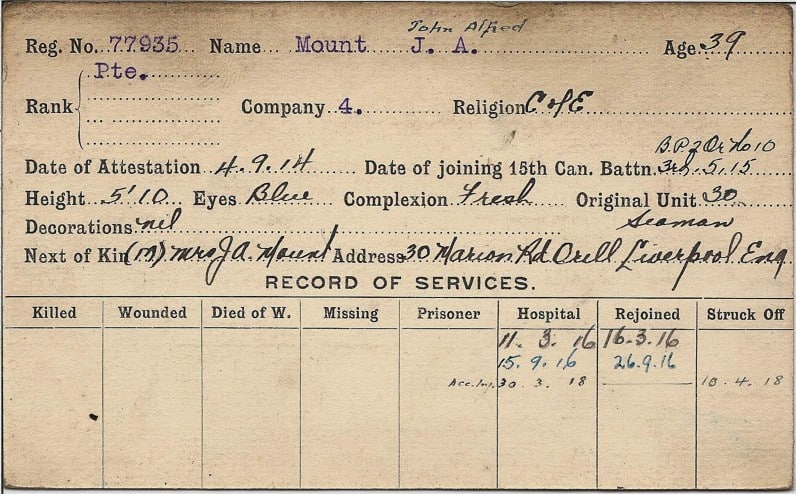 John Alfred
Reg. No. 77935 Name Mount J. A. Age 39
Pte.
Rank Company 4. Religion C of E
B.P2 Or No 10
Date of Attestation 4.9.14 Date of joining 15th Can. Battn. 3rd.5.15
Height 5'10 Eyes Blue Complexion Fresh Original Unit 30
Decorations nil Seaman
Next of Kin (M) Mrs J A. Mount Address 30 Marion Rd Orell Liverpool Eng
RECORD OF SERVICES.
Killed Wounded Died of W. Missing Prisoner Hospital Rejoined Struck Off
11. 3. 16 16-3-16
15. 9. 16 26.9.16
Acc. Inj. 30. 3. 18 10. 4. 18